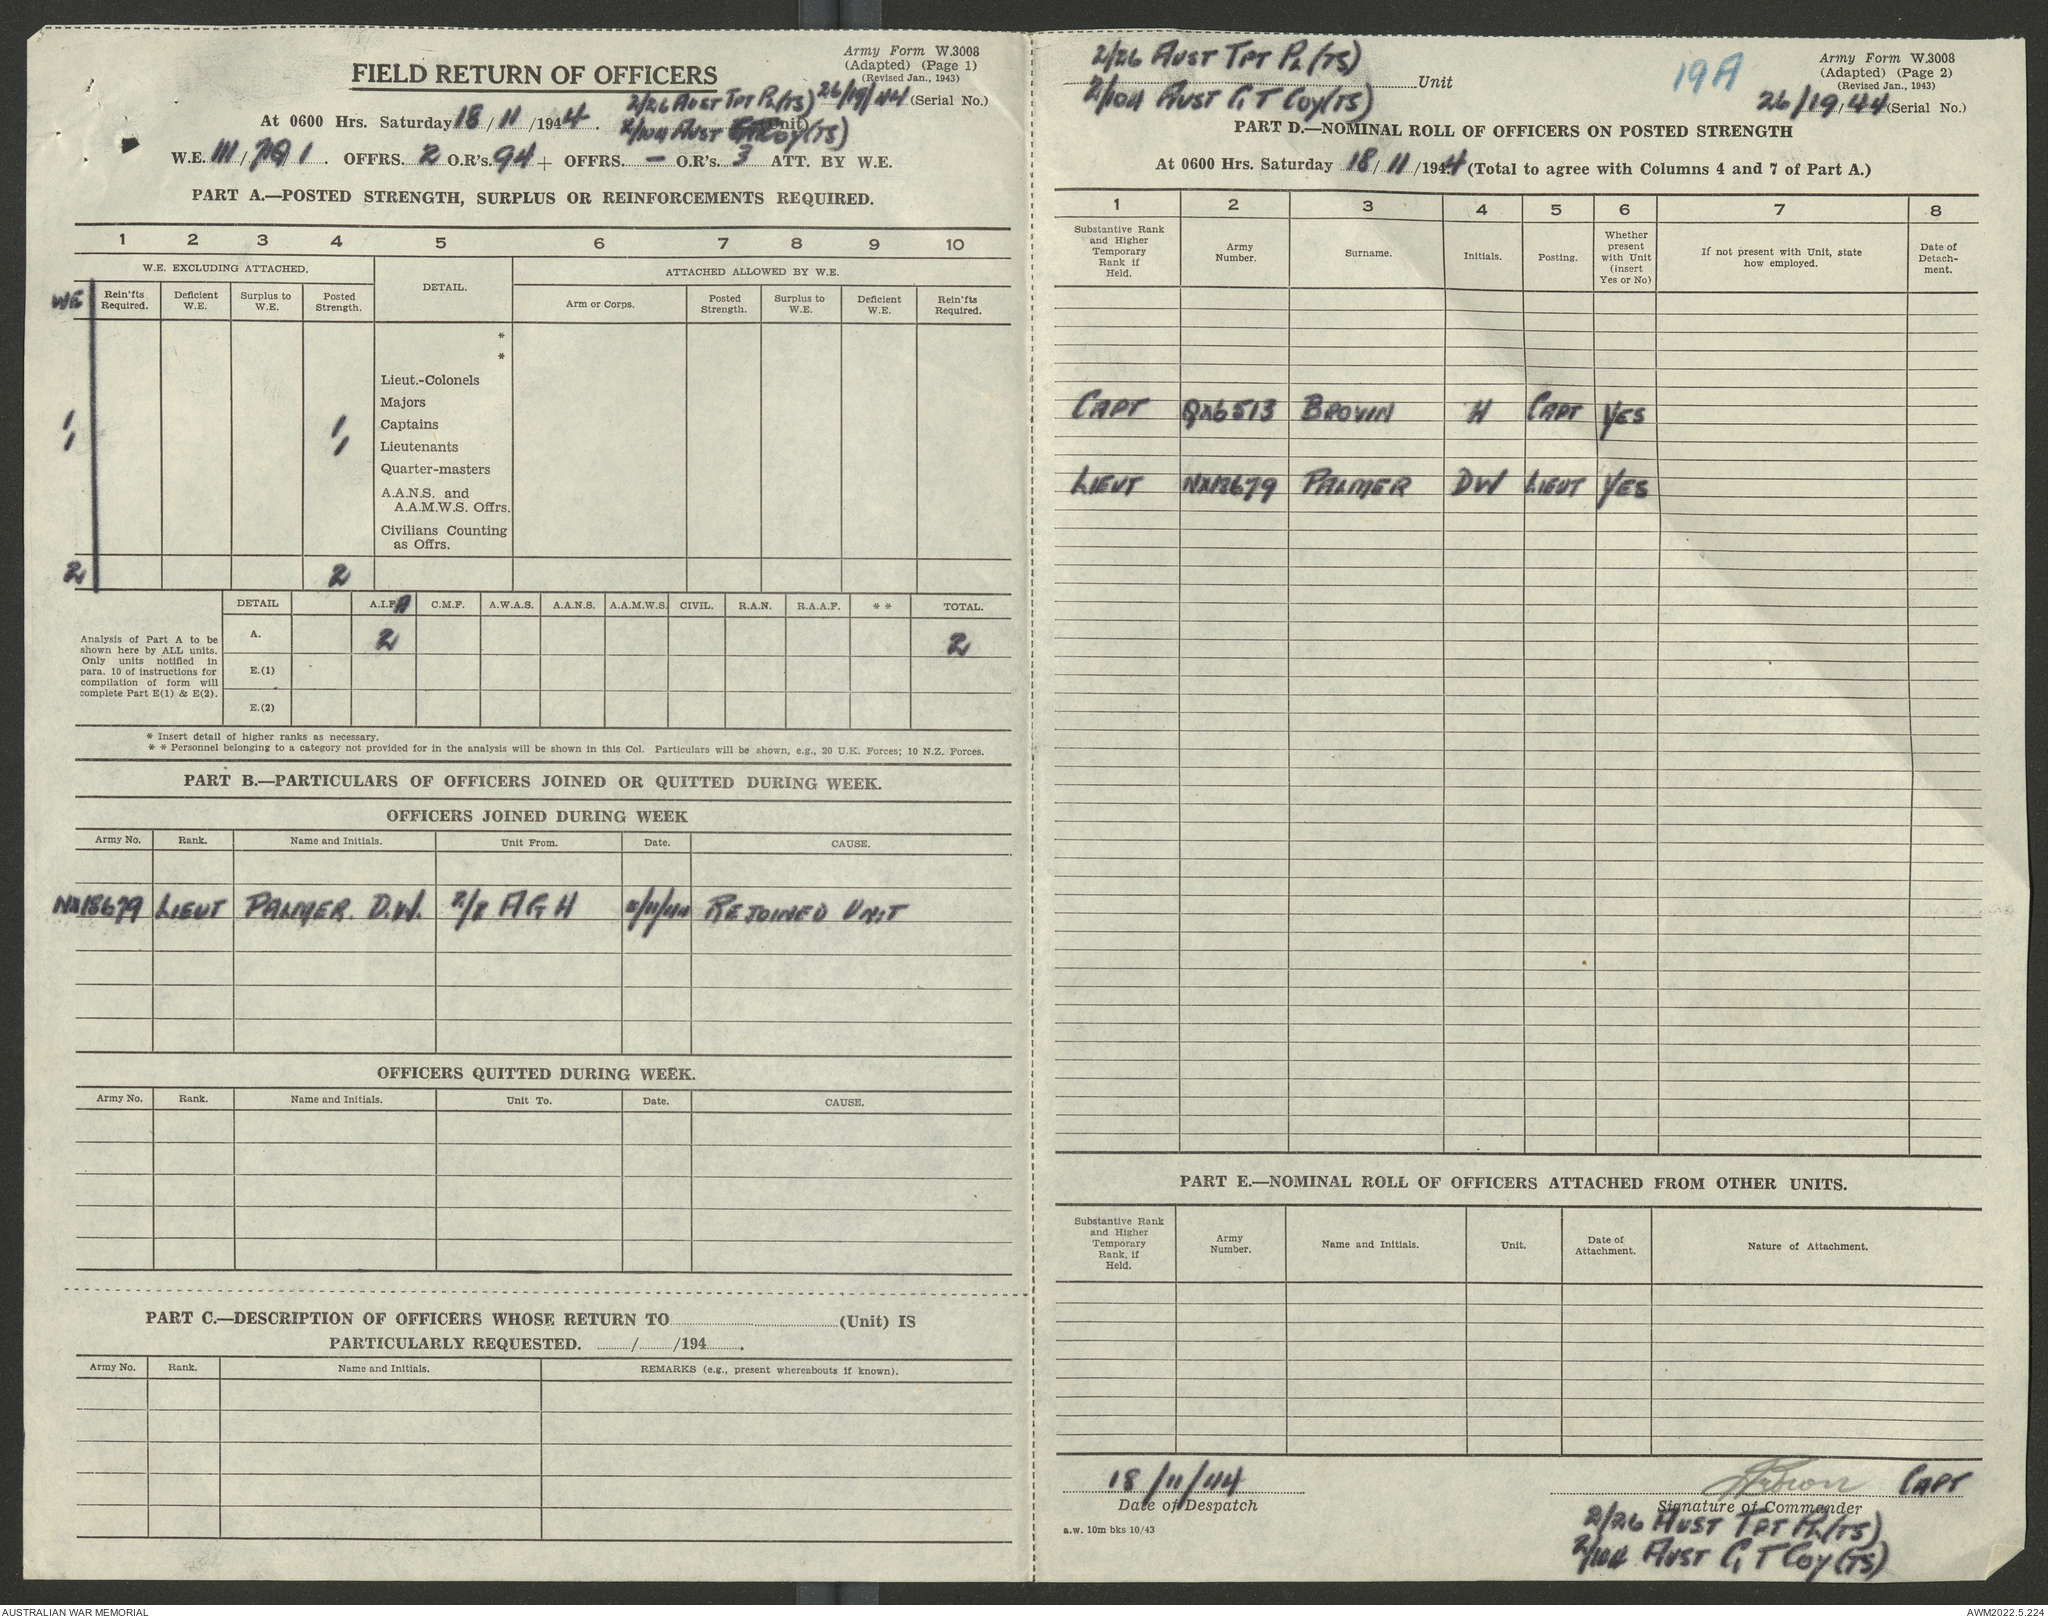 Army Form W.3008
(Adapted) (Page 1)
(Revised Jan., 1943)
FIELD RETURN OF OFFICERS
2/26 AUST TPT PL (TS) 26/19/44 (Serial No.)
At 0600 Hrs. Saturday 18/11/1944. 2/104 AUST GT COY (TS) (Unit)
W.E. III/791. OFFRS. 2 O.R's. 94 + OFFRS. – O.R's. 3 ATT. BY W.E.
PART A.—POSTED STRENGTH, SURPLUS OR REINFORCEMENTS REQUIRED.
1 2 3 4 5 6 7 8 9 10
W.E. EXCLUDING ATTACHED. DETAIL. ATTACHED ALLOWED BY W.E.
WE Rein'fts Required. Deficient W.E. Surplus to W.E. Posted Strength. Arm or Corps. Posted Strength. Surplus to W.E. Deficient W.E. Rein'fts Required.
*
*
Lieut.-Colonels
Majors
1 1 Captains
1 1 Lieutenants
Quarter-masters
A.A.N.S. and
A.A.M.W.S. Offrs.
Civilians Counting
as Offrs.
2 2
DETAIL A.I.F. C.M.F. A.W.A.S. A.A.N.S. A.A.M.W.S. CIVIL. R.A.N. R.A.A.F. * * TOTAL.
Analysis of Part A to be
shown here by ALL units.
Only units notified in
para. 10 of instructions for
compilation of form will
complete Part E(1) & E(2).
A. 2 2
E.(1)
E.(2)
* Insert detail of higher ranks as necessary.
* * Personnel belonging to a category not provided for in the analysis will be shown in this Col. Particulars will be shown, e.g., 20 U.K. Forces; 10 N.Z. Forces.
PART B.—PARTICULARS OF OFFICERS JOINED OR QUITTED DURING WEEK.
OFFICERS JOINED DURING WEEK
Army No. Rank. Name and Initials. Unit From. Date. CAUSE.
NX18679 LIEUT PALMER. D.W. 2/8 AGH /11/44 REJOINED UNIT
OFFICERS QUITTED DURING WEEK.
Army No. Rank. Name and Initials. Unit To. Date. CAUSE.
PART C.—DESCRIPTION OF OFFICERS WHOSE RETURN TO (Unit) IS
PARTICULARLY REQUESTED. / /194 .
Army No. Rank. Name and Initials. REMARKS (e.g., present whereabouts if known).
2/26 AUST TPT PL (TS)
2/104 AUST GT COY (TS) Unit
19A
Army Form W.3008
(Adapted) (Page 2)
(Revised Jan., 1943)
26/19/44 (Serial No.)
PART D.—NOMINAL ROLL OF OFFICERS ON POSTED STRENGTH
At 0600 Hrs. Saturday 18/11/1944 (Total to agree with Columns 4 and 7 of Part A.)
1 2 3 4 5 6 7 8
Substantive Rank and Higher Temporary Rank if Held. Army Number. Surname. Initials. Posting. Whether present with Unit (insert Yes or No) If not present with Unit, state how employed. Date of Detach-ment.
CAPT QX6513 BROWN H CAPT YES
LIEUT NX18679 PALMER DW LIEUT YES
PART E.—NOMINAL ROLL OF OFFICERS ATTACHED FROM OTHER UNITS.
Substantive Rank and Higher Temporary Rank, if Held. Army Number. Name and Initials. Unit. Date of Attachment. Nature of Attachment.
18/11/44
Date of Despatch
a.w. 10m bks 10/43
HBrown CAPT
Signature of Commander
2/26 AUST TPT PL (TS)
2/104 AUST GT COY (TS)
AUSTRALIAN WAR MEMORIAL
AWM2022.5.224